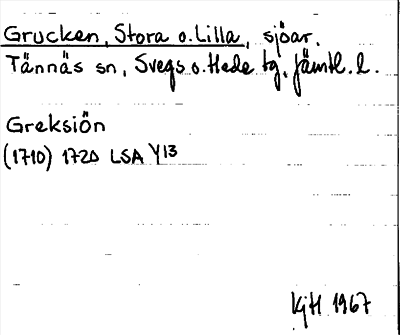 Grucken, Stora o. Lilla, sjöar.
Tännäs sn, Svegs o. Hede tg, Jämtl. l.
Greksiön
(1710) 1720 LSA Y13
KjH 1967